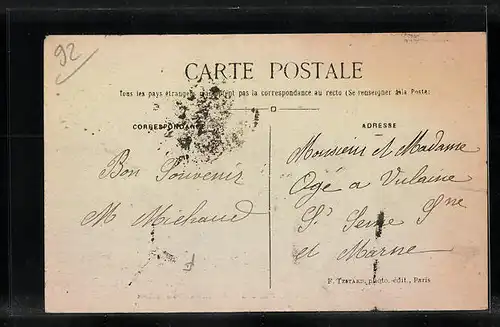 92
CARTE POSTALE
Tous les pays étrangers n'acceptent pas la correspondance au recto (Se renseigner à la Poste)
CORRESPONDANCE
ADRESSE
Bon Souvenir
M Michaud
Monsieur et Madame
Ogé a Vulaine
Sr Seine Sne
et Marne
F. Testard, photo. édit., Paris